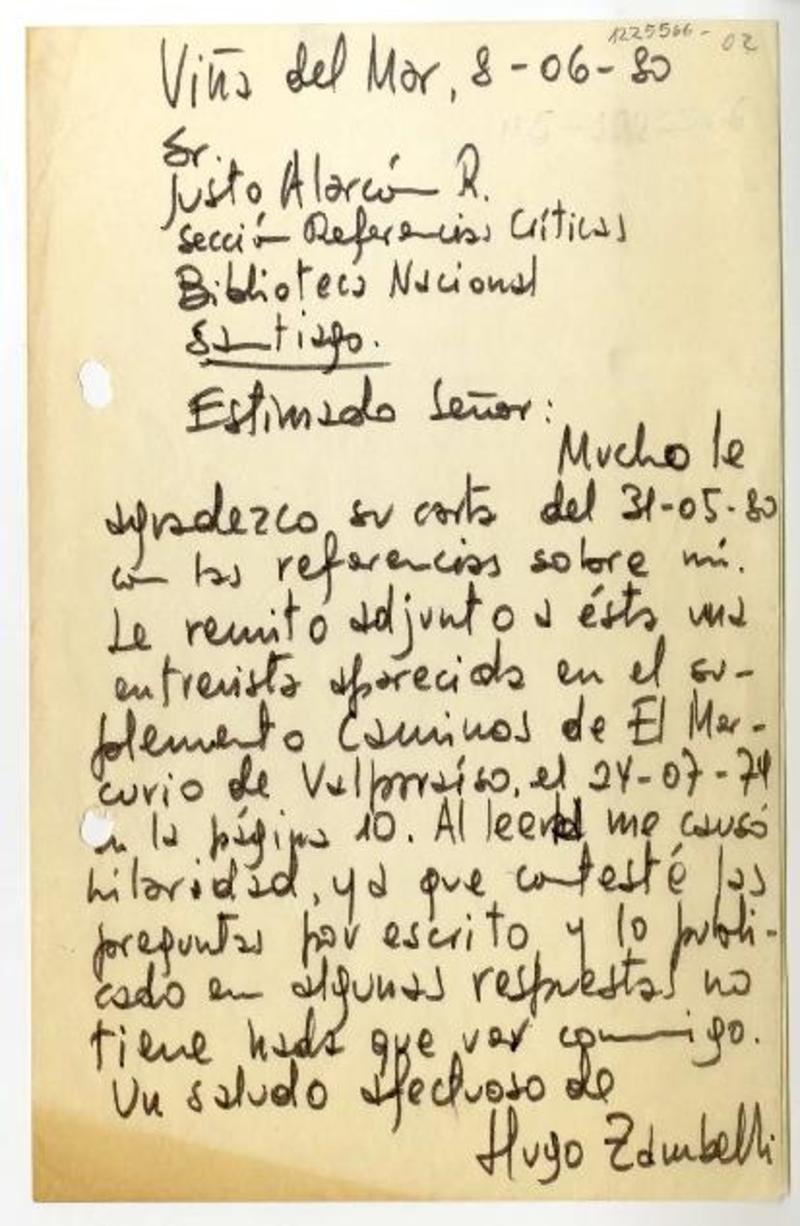 1225566-02
Viña del Mar, 8-06-80
Sr.
Justo Alarcón R.
Sección Referencias Críticas
Biblioteca Nacional
Santiago.
Estimado Señor:
Mucho le
agradezco su carta del 31-05-80
con las referencias sobre mí.
Le remito adjunto a ésta una
entrevista aparecida en el su-
plemento Caminos de El Mer-
curio de Valparaíso, el 24-07-74
en la página 10. Al leerla me causó
hilaridad, ya que contesté las
preguntas por escrito y lo publi-
cado en algunas respuestas no
tiene nada que ver conmigo.
Un saludo afectuoso de
Hugo Zambelli